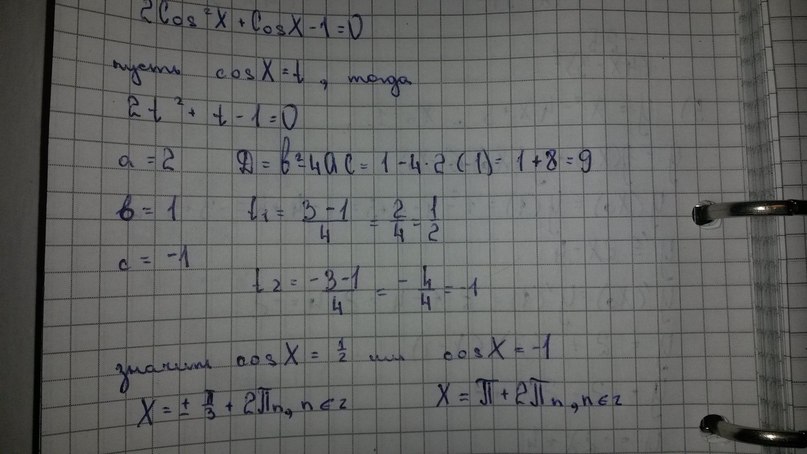 2Cos²X + CosX - 1 = 0
пусть cosX = t, тогда
2t² + t - 1 = 0
a = 2 D = b² - 4ac = 1 - 4·2·(-1) = 1 + 8 = 9
b = 1 t₁ = (3-1)/4 = 2/4 = 1/2
c = -1
t₂ = (-3-1)/4 = -4/4 = -1
значит cosX = 1/2 или cosX = -1
X = ± π/3 + 2πn, n ∈ z X = π + 2πn, n ∈ z